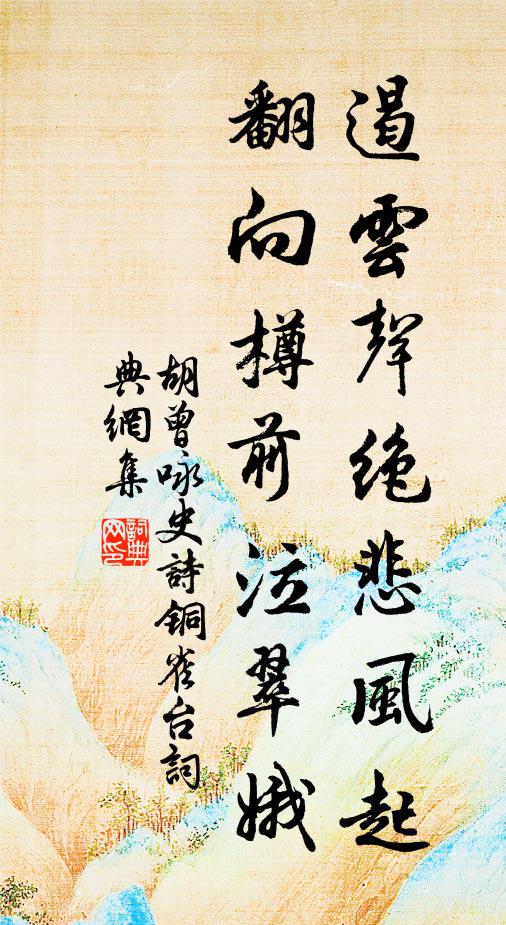 遏雲聲絶悲風起
翻向樽前泣翠娥
胡曾咏史詩铜雀台詞
典網集
詞典
网印